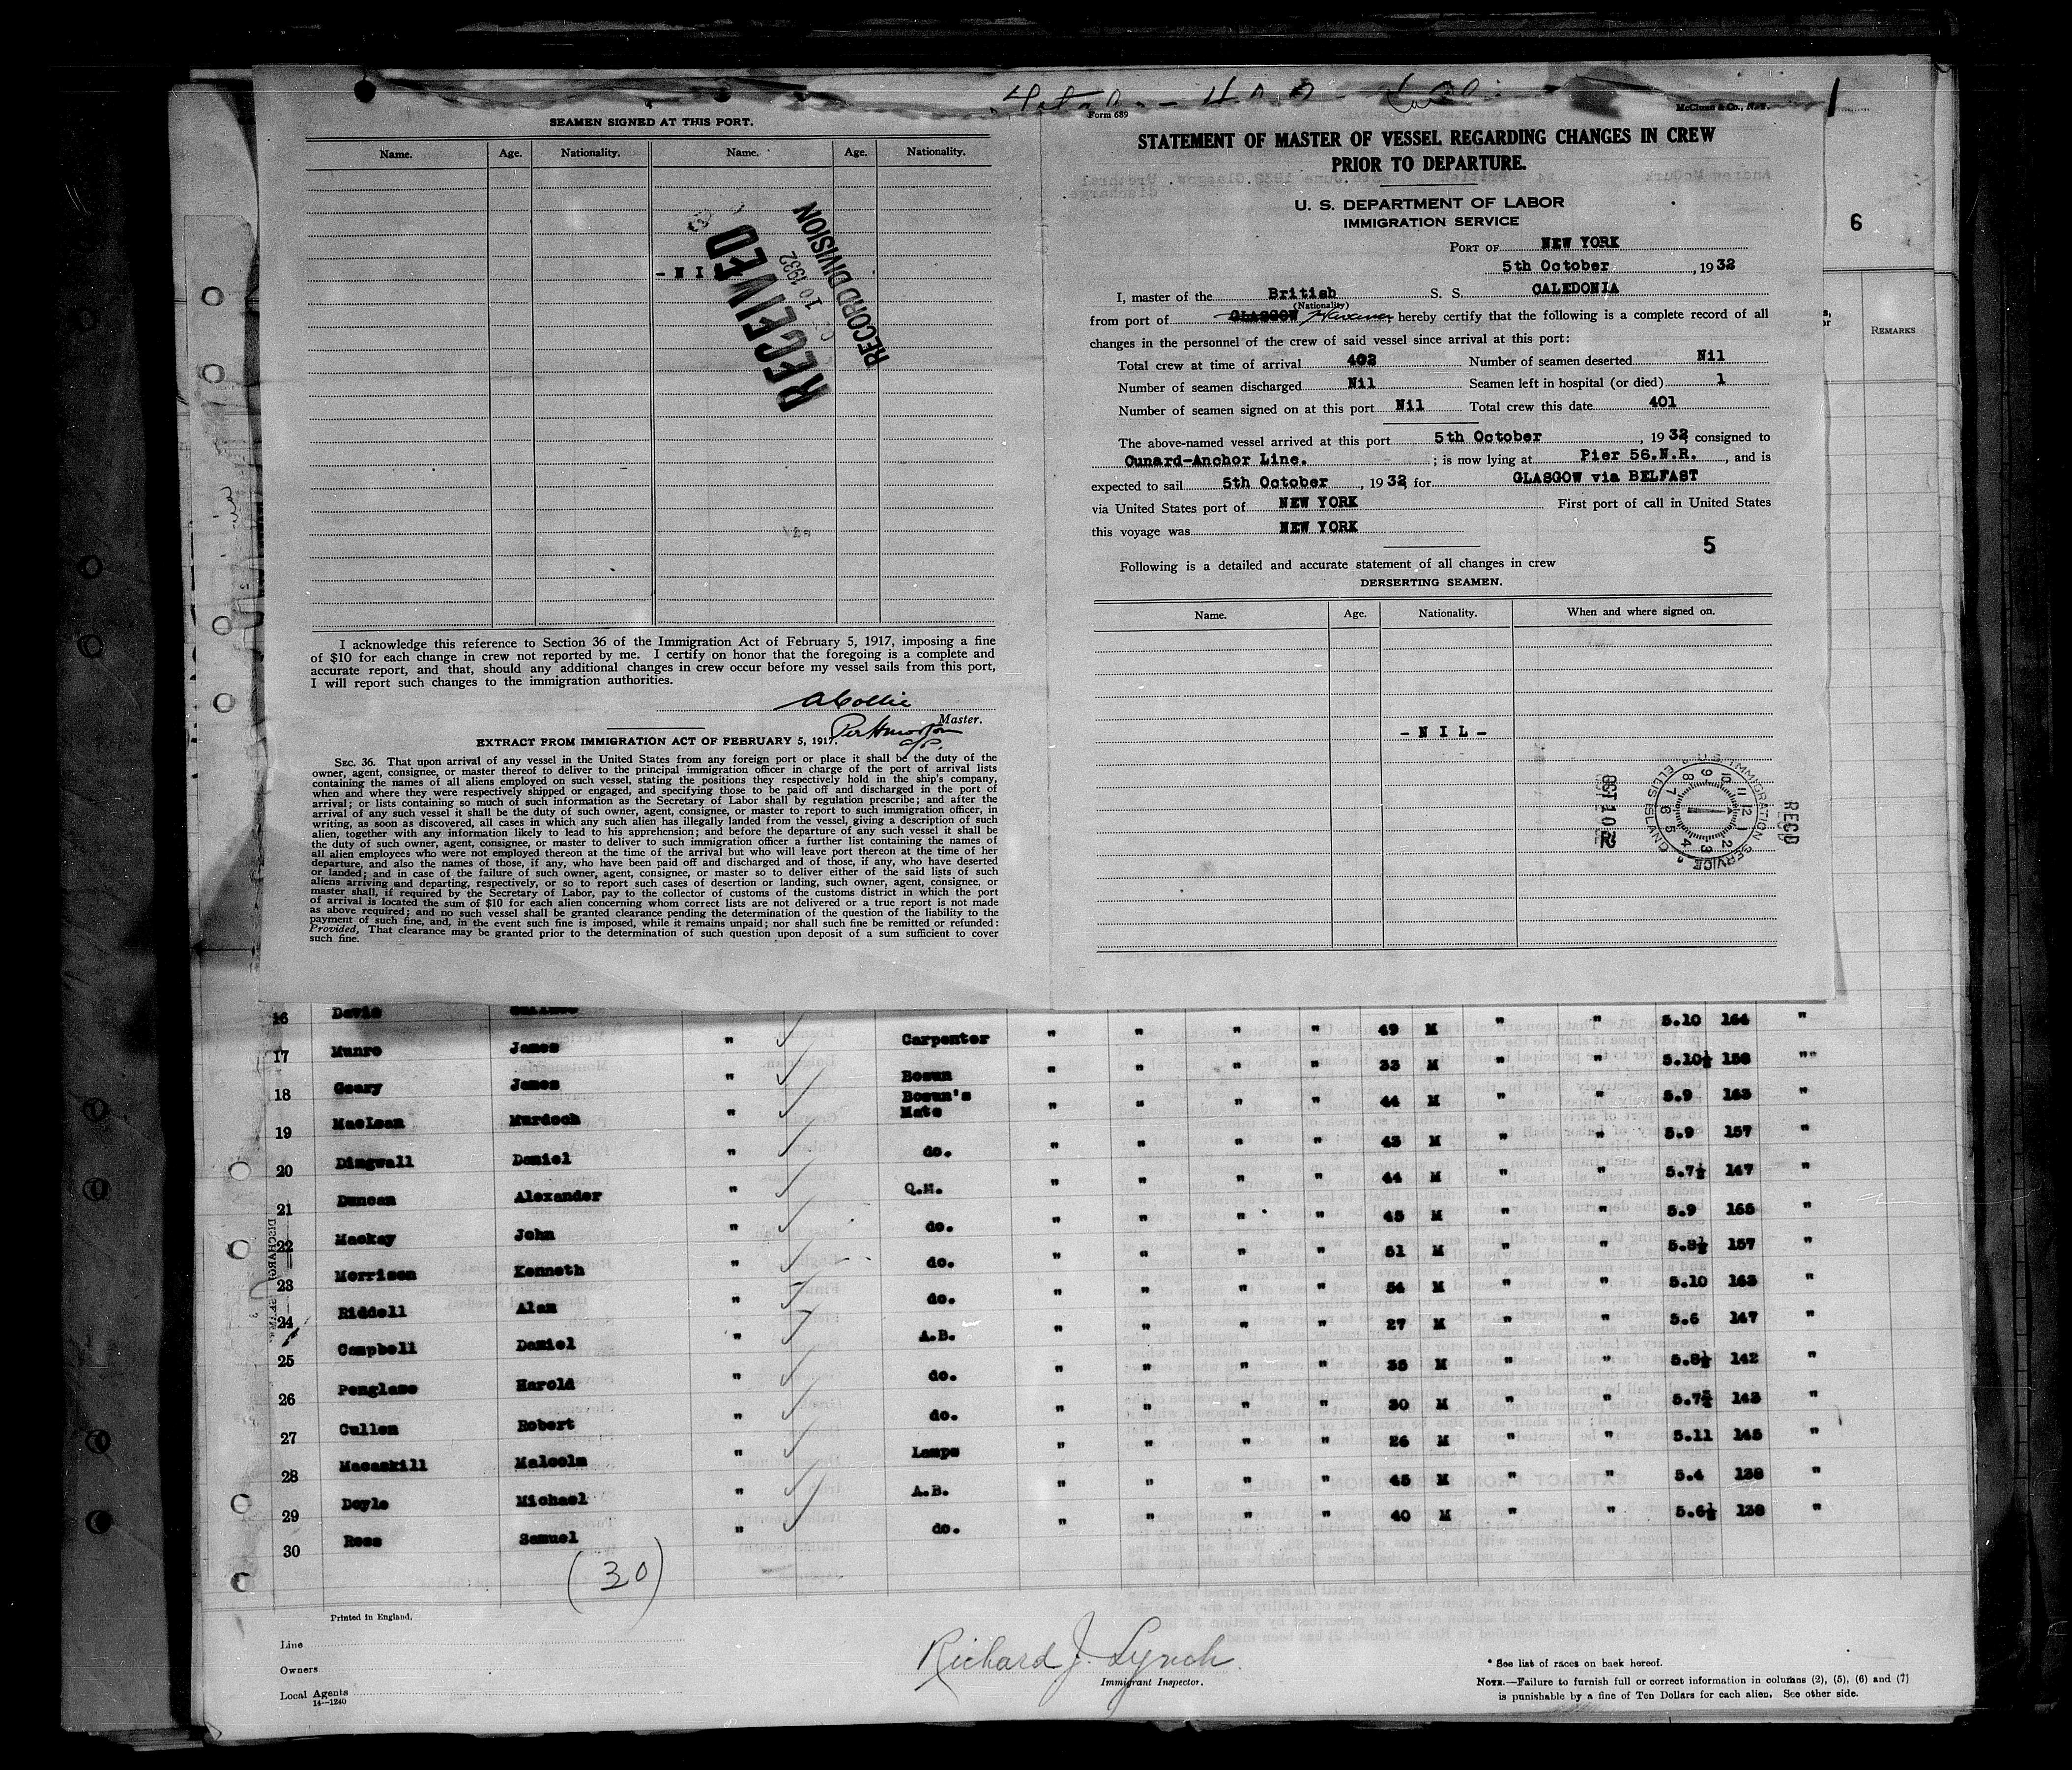 SEAMEN SIGNED AT THIS PORT.
Name. Age. Nationality. Name. Age. Nationality.
- N I
RECEIVED
10 1932
RECORD DIVISION
I acknowledge this reference to Section 36 of the Immigration Act of February 5, 1917, imposing a fine
of $10 for each change in crew not reported by me. I certify on honor that the foregoing is a complete and
accurate report, and that, should any additional changes in crew occur before my vessel sails from this port,
I will report such changes to the immigration authorities.
A Collie
Master.
EXTRACT FROM IMMIGRATION ACT OF FEBRUARY 5, 1917.
SEC. 36. That upon arrival of any vessel in the United States from any foreign port or place it shall be the duty of the
owner, agent, consignee, or master thereof to deliver to the principal immigration officer in charge of the port of arrival lists
containing the names of all aliens employed on such vessel, stating the positions they respectively hold in the ship's company,
when and where they were respectively shipped or engaged, and specifying those to be paid off and discharged in the port of
arrival; or lists containing so much of such information as the Secretary of Labor shall by regulation prescribe; and after the
arrival of any such vessel it shall be the duty of such owner, agent, consignee, or master to report to such immigration officer, in
writing, as soon as discovered, all cases in which any such alien has illegally landed from the vessel, giving a description of such
alien, together with any information likely to lead to his apprehension; and before the departure of any such vessel it shall be
the duty of such owner, agent, consignee, or master to deliver to such immigration officer a further list containing the names of
all alien employees who were not employed thereon at the time of the arrival but who will leave port thereon at the time of her
departure, and also the names of those, if any, who have been paid off and discharged and of those, if any, who have deserted
or landed; and in case of the failure of such owner, agent, consignee, or master so to deliver either of the said lists of such
aliens arriving and departing, respectively, or so to report such cases of desertion or landing, such owner, agent, consignee, or
master shall, if required by the Secretary of Labor, pay to the collector of customs of the customs district in which the port
of arrival is located the sum of $10 for each alien concerning whom correct lists are not delivered or a true report is not made
as above required; and no such vessel shall be granted clearance pending the determination of the question of the liability to the
payment of such fine, and, in the event such fine is imposed, while it remains unpaid; nor shall such fine be remitted or refunded:
Provided, That clearance may be granted prior to the determination of such question upon deposit of a sum sufficient to cover
such fine.
Form 689
McClunn & Co., N.Y.
STATEMENT OF MASTER OF VESSEL REGARDING CHANGES IN CREW
PRIOR TO DEPARTURE.
U. S. DEPARTMENT OF LABOR
IMMIGRATION SERVICE
PORT OF NEW YORK
5th October, 1932
I, master of the British S. S. CALEDONIA
(Nationality)
from port of GLASGOW hereby certify that the following is a complete record of all
changes in the personnel of the crew of said vessel since arrival at this port:
Total crew at time of arrival 402 Number of seamen deserted Nil
Number of seamen discharged Nil Seamen left in hospital (or died) 1
Number of seamen signed on at this port Nil Total crew this date 401
The above-named vessel arrived at this port 5th October, 1932, consigned to
Cunard-Anchor Line. ; is now lying at Pier 56.N.R., and is
expected to sail 5th October, 1932, for GLASGOW via BELFAST
via United States port of NEW YORK First port of call in United States
this voyage was NEW YORK
5
Following is a detailed and accurate statement of all changes in crew
DERSERTING SEAMEN.
Name. Age. Nationality. When and where signed on.
- N I L -
RECD
U.S. IMMIGRATION SERVICE ELLIS ISLAND
OCT 10
6
REMARKS
16 Davie 49 M " " 5.10 164 "
17 Munro James " Carpenter " " " " 33 M " " 5.10½ 158 "
18 Geary James " Bosun " " " " 44 M " " 5.9 163 "
19 MacLean Murdoch " Bosun's Mate " " " " 43 M " " 5.9 157 "
20 Dingwall Daniel " do. " " " " 44 M " " 5.7½ 147 "
21 Duncan Alexander " Q.M. " " " " 45 M " " 5.9 165 "
22 Mackay John " do. " " " " 51 M " " 5.8½ 157 "
23 Morrison Kenneth " do. " " " " 54 M " " 5.10 163 "
24 Riddell Alan " do. " " " " 27 M " " 5.6 147 "
25 Campbell Daniel " A.B. " " " " 35 M " " 5.8½ 142 "
26 Penglase Harold " do. " " " " 30 M " " 143 "
27 Cullen Robert " do. " " " " 26 M " " 5.11 145 "
28 Macaskill Malcolm " Lamps " " " " 45 M " " 5.4 138 "
29 Doyle Michael " A.B. " " " " 40 M " " 5.6½ 138 "
30 Ross Samuel " do. "
(30)
Printed in England.
Line
Owners
Local Agents
14—1240
Richard J. Lynch
Immigrant Inspector.
* See list of races on back hereof.
NOTE.—Failure to furnish full or correct information in columns (2), (5), (6) and (7)
is punishable by a fine of Ten Dollars for each alien. See other side.